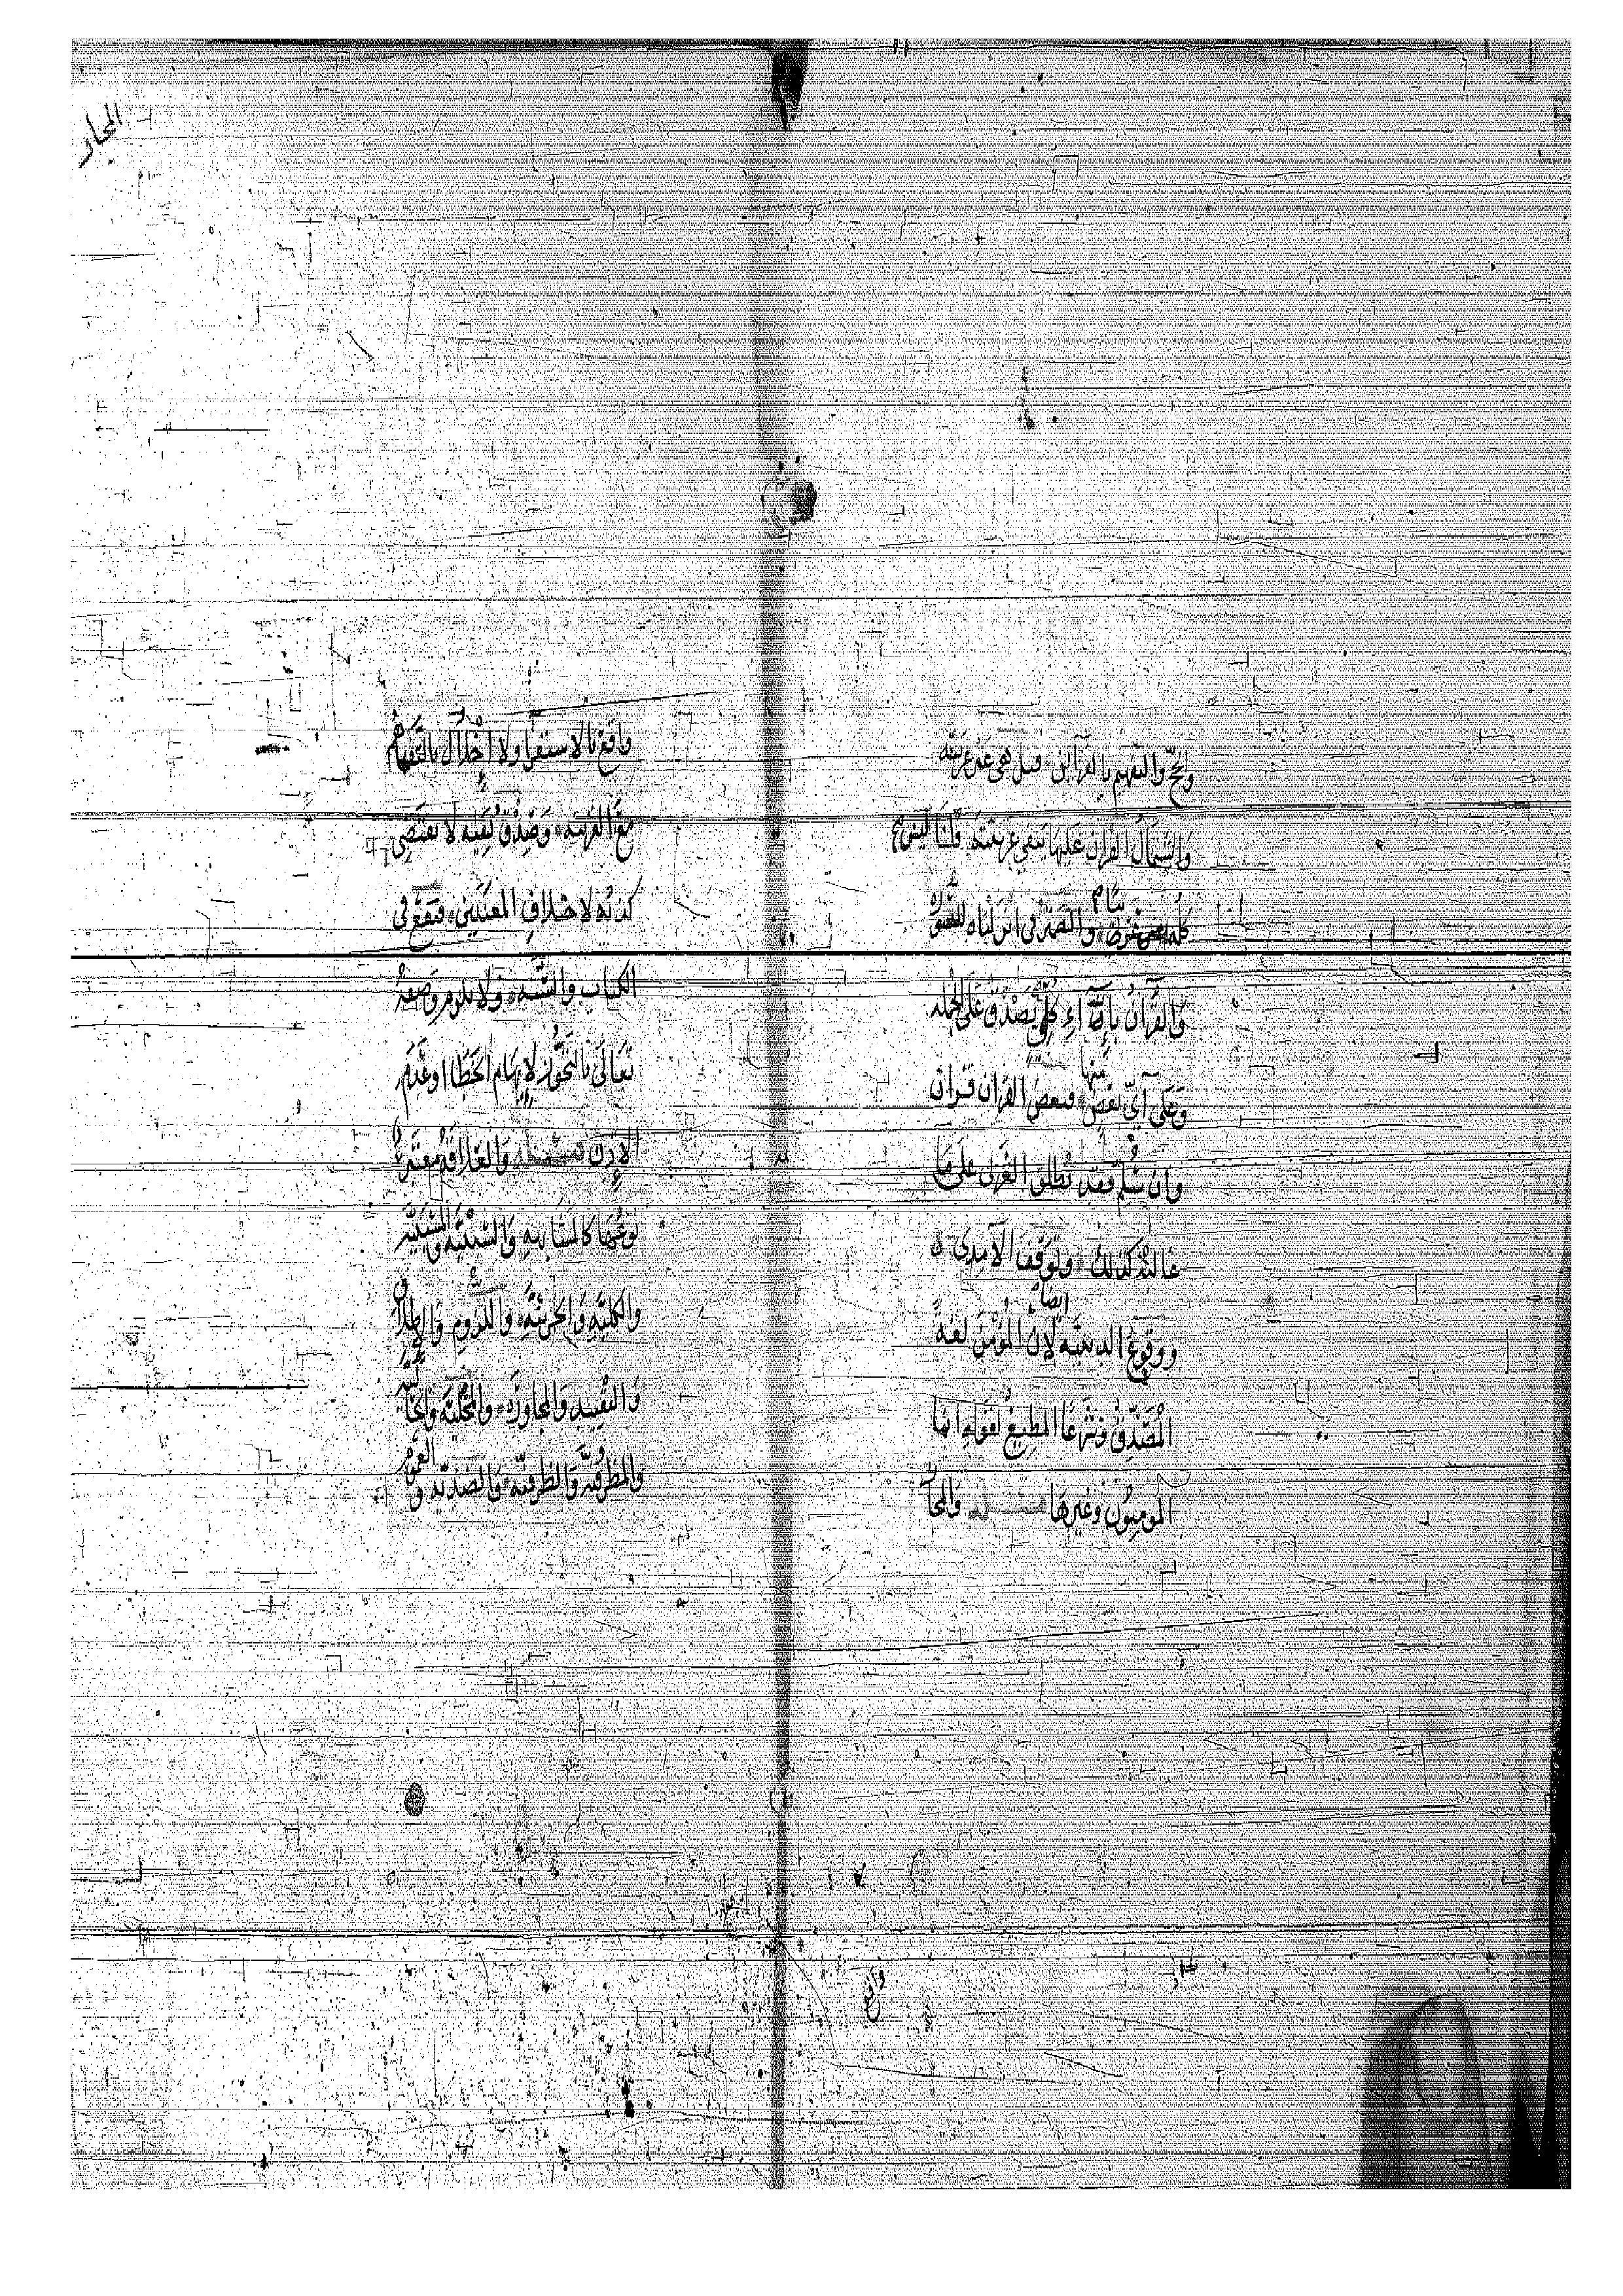 والحج والتفهيم بالقرآين قيل هى غير عربيه
واشتمال القران عليها ينفي عربيته قلنا ليس مع
والضمير في انزلناه للسوره
والقران بازآء يصدق على الجمله
وعلى آي بعض منها فبعض القران قران
وان سلم فقد يطلق العربى على ما
غالبه كذلك وتوقف الآمدى
ووقوع الدينيه ايضا لان المؤمن لغة
المصدق وشرعا المطيع لقوله انما
المومنون وغيرها مسئله والمجا
واقع
المجاز
واقع بالاستقرا ولا اخلال بالتفاهم
مع القرينه وصدق نفيه لا يقتضى
كذبه لاختلاف المعنيين فتقع فى
الكتاب والسنه ولا يلزم وصفه
تعالى بالتجوز لايهام الخطا او عدم
الاذن مسئله والعلاقه معتبر
نوعها كالمشابهه والسببيه والمسببيه
والكليه والجزئيه واللزوم والاطلاق
والتقييد والمجاوره والمحليه والحاليه
والمظروفيه والظرفيه والضديه والعموم